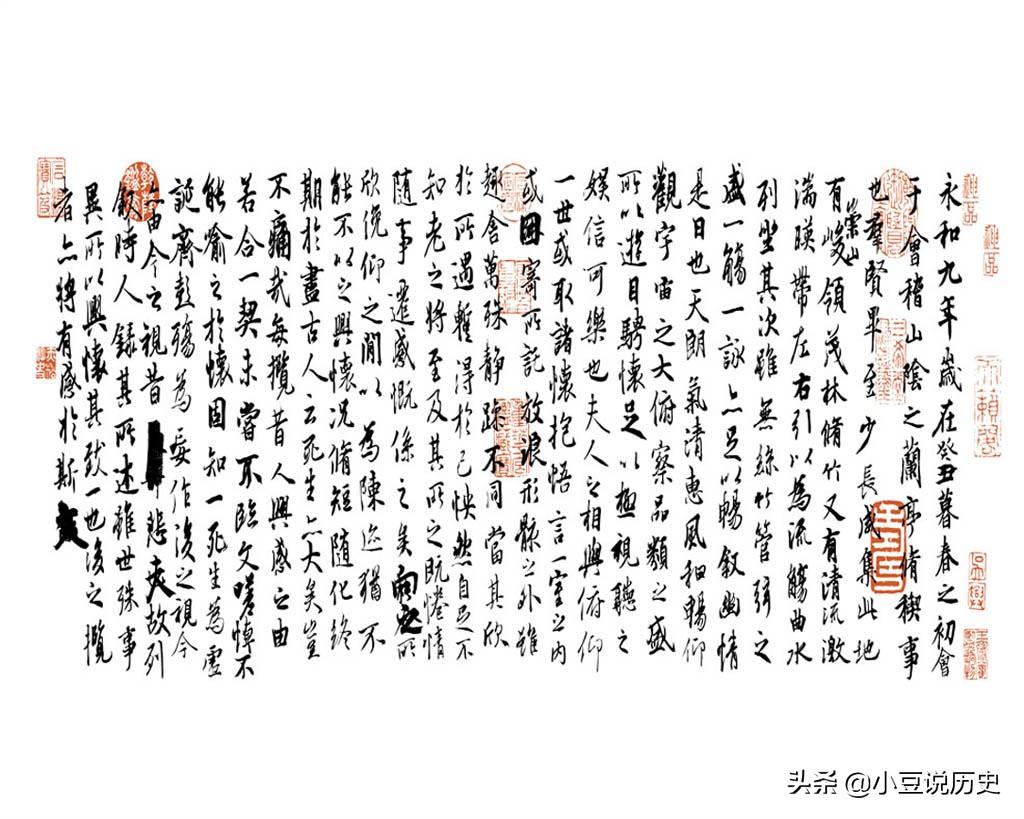 永和九年歲在癸丑暮春之初會
于會稽山陰之蘭亭脩稧事
也羣賢畢至少長咸集此地
有崇山峻領茂林脩竹又有清流激
湍暎帶左右引以為流觴曲水
列坐其次雖無絲竹管弦之
盛一觴一詠亦足以暢敘幽情
是日也天朗氣清惠風和暢仰
觀宇宙之大俯察品類之盛
所以遊目騁懷足以極視聽之
娛信可樂也夫人之相與俯仰
一世或取諸懷抱悟言一室之內
或因寄所託放浪形骸之外雖
趣舍萬殊靜躁不同當其欣
於所遇蹔得於己怏然自足不
知老之將至及其所之既惓情
隨事遷感慨係之矣向之所
欣俛仰之閒以為陳迹猶不
能不以之興懷況脩短隨化終
期於盡古人云死生亦大矣豈
不痛哉每攬昔人興感之由
若合一契未嘗不臨文嗟悼不
能喻之於懷固知一死生為虛
誕齊彭殤為妄作後之視今
亦由今之視昔悲夫故列
敘時人錄其所述雖世殊事
異所以興懷其致一也後之攬
者亦將有感於斯文
头条 @小豆说历史